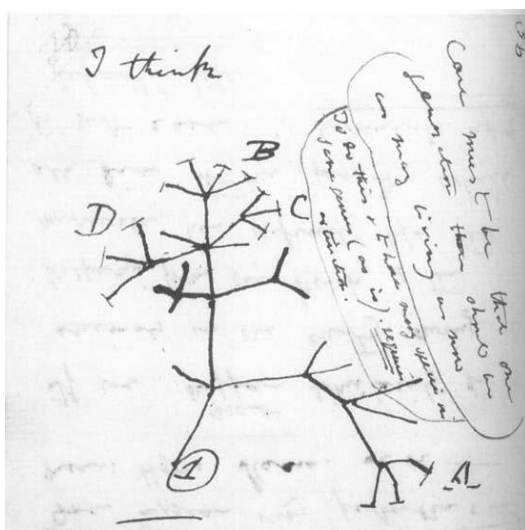 I think
36
Case must be that one
generation then should be
as many living as now
To do this & to have many species in
same genus (as is). requires
extinction.
B
C
D
A
1